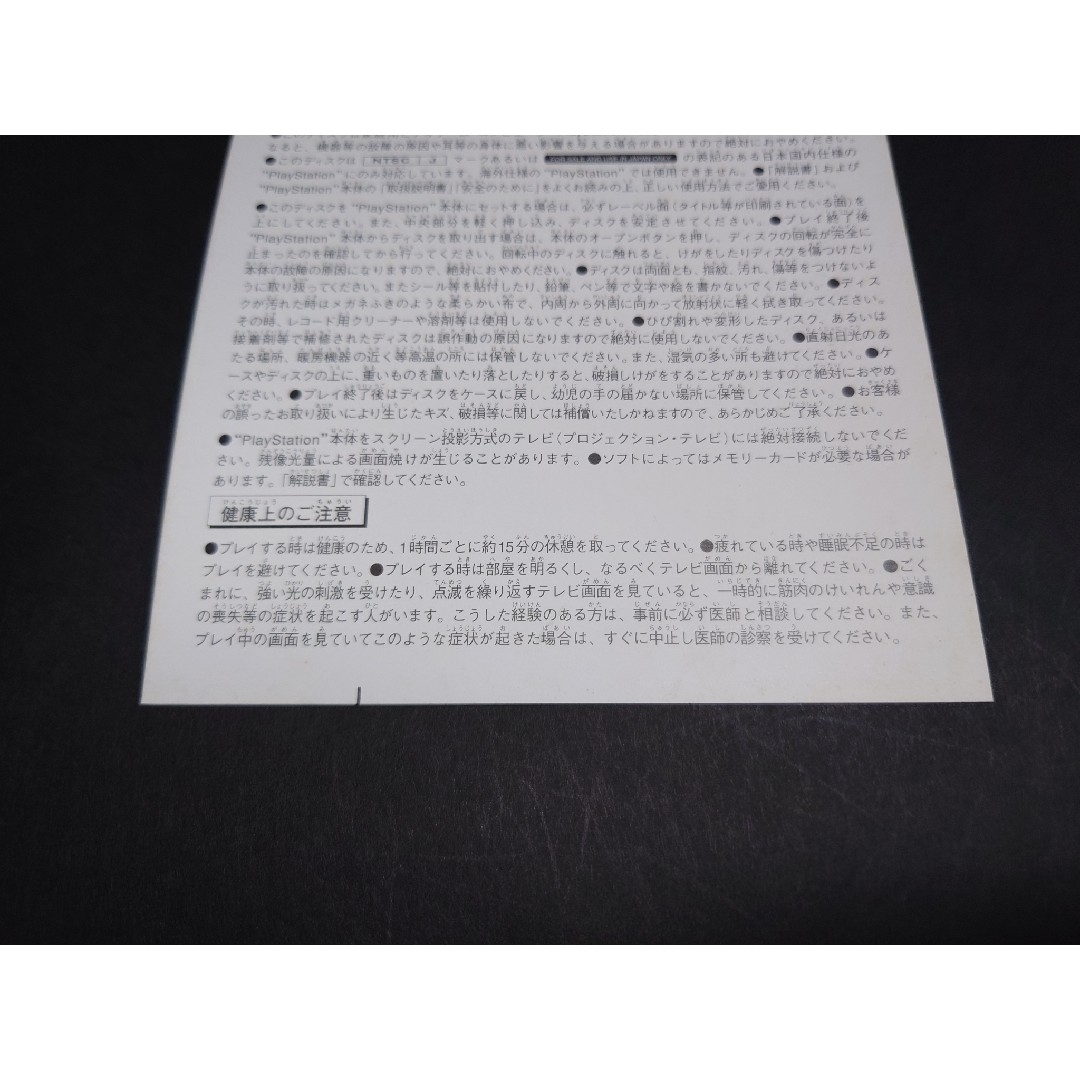 なると、機器等の故障の原因や耳等の身体に悪い影響を与える場合がありますので絶対におやめください。
●このディスクは NTSC J マークあるいは FOR SALE AND USE IN JAPAN ONLY の表記のある日本国内仕様の
"PlayStation"にのみ対応しています。海外仕様の"PlayStation"では使用できません。●「解説書」および
"PlayStation"本体の「取扱説明書」「安全のために」をよくお読みの上、正しい使用方法でご愛用ください。
●このディスクを"PlayStation"本体にセットする場合は、必ずレーベル面(タイトル等が印刷されている面)を
上にしてください。また、中央部分を軽く押し込み、ディスクを安定させてください。●プレイ終了後
"PlayStation"本体からディスクを取り出す場合は、本体のオープンボタンを押し、ディスクの回転が完全に
止まったのを確認してから行ってください。回転中のディスクに触れると、けがをしたりディスクを傷つけたり
本体の故障の原因になりますので、絶対におやめください。●ディスクは両面とも、指紋、汚れ、傷等をつけないよ
うに取り扱ってください。またシール等を貼付したり、鉛筆、ペン等で文字や絵を書かないでください。●ディス
クが汚れた時はメガネふきのような柔らかい布で、内周から外周に向かって放射状に軽く拭き取ってください。
その時、レコード用クリーナーや溶剤等は使用しないでください。●ひび割れや変形したディスク、あるいは
接着剤等で補修されたディスクは誤作動の原因になりますので絶対に使用しないでください。●直射日光のあ
たる場所、暖房機器の近く等高温の所には保管しないでください。また、湿気の多い所も避けてください。●ケ
ースやディスクの上に、重いものを置いたり落としたりすると、破損しけがをすることがありますので絶対におやめ
ください。●プレイ終了後はディスクをケースに戻し、幼児の手の届かない場所に保管してください。●お客様
の誤ったお取り扱いにより生じたキズ、破損等に関しては補償いたしかねますので、あらかじめご了承ください。
●"PlayStation"本体をスクリーン投影方式のテレビ(プロジェクション・テレビ)には絶対接続しないでくだ
さい。残像光量による画面焼けが生じることがあります。●ソフトによってはメモリーカードが必要な場合が
あります。「解説書」で確認してください。
健康上のご注意
●プレイする時は健康のため、1時間ごとに約15分の休憩を取ってください。●疲れている時や睡眠不足の時は
プレイを避けてください。●プレイする時は部屋を明るくし、なるべくテレビ画面から離れてください。●ごく
まれに、強い光の刺激を受けたり、点滅を繰り返すテレビ画面を見ていると、一時的に筋肉のけいれんや意識
の喪失等の症状を起こす人がいます。こうした経験のある方は、事前に必ず医師と相談してください。また、
プレイ中の画面を見ていてこのような症状が起きた場合は、すぐに中止し医師の診察を受けてください。